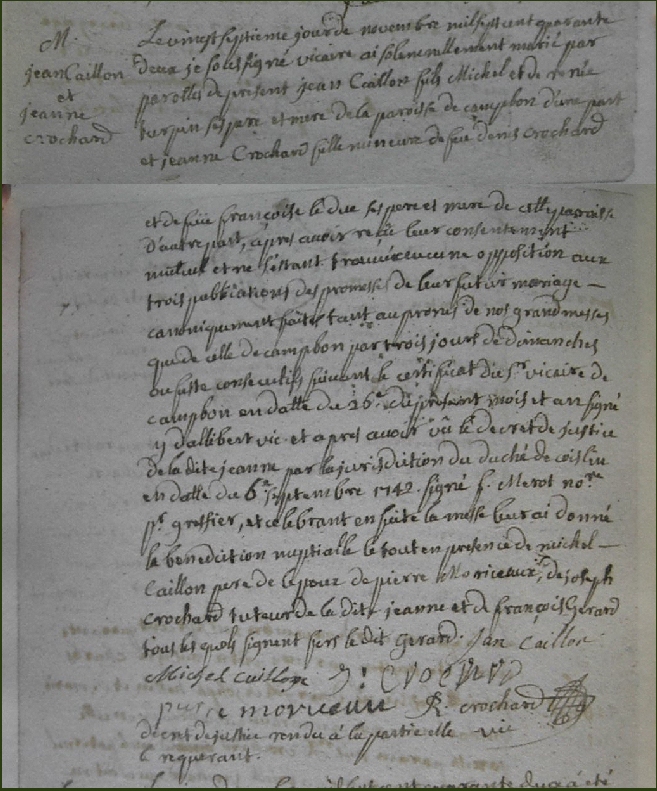 M.
jean Caillon
et
jeanne
crochard
Le vingt septieme jour de novembre mil sept cent quarante
deux je soussigné vicaire ai solennellement marié par
parolles de présent jean Caillon fils Michel et de renée
turpin ses pere et mere de la paroisse de campbon d'une part
et jeanne Crochard fille mineure de feu denis Crochard
et de feüe françoise le due ses pere et mere de cette paroisse
d'autre part, apres avoir receu leur consentement
mutuel et ne s'estant trouvé aucune opposition aux
trois publications des promesses de leur futur mariage —
canoniquement faites tant au prones de nos grandmesses
que de celle de campbon par trois jours de dimanches
ou feste consecutifs suivant le certificat du sr. vicaire de
campbon en datte du 26e. du present mois et an signé
y dallibert vic. et apres avoir vû le decret de justice
de la dite jeanne par la jurisdiction du duché de coislin
en datte du 6e. septembre 1742. signé f. Merot nore.
pr. greffier, et celebrant ensuite la messe leur ai donné
la benediction nuptialle le tout en presence de michel —
Caillon pere de lepoux de pierre Moriceaux, de joseph
crochard tuteur de la dite jeanne et de françois Gerard
tous lesquels signent fors le dit Gerard. Jan Caillon
Michel Caillon J : crochard
pierre moriceau R. crochard
decret de justice rendu á la partie elle vic
le requerant.